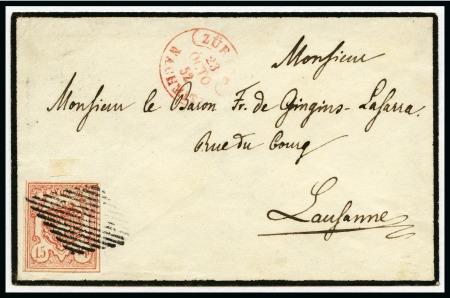 ZÜR
23
OCTO
52
NACHM
Monsieur
Monsieur le Baron Fr. de Gingins-Lasarra.
Rue du bourg
Lausanne
15